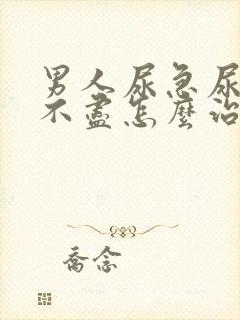 男人尿急尿
不盡怎麼治
喬念